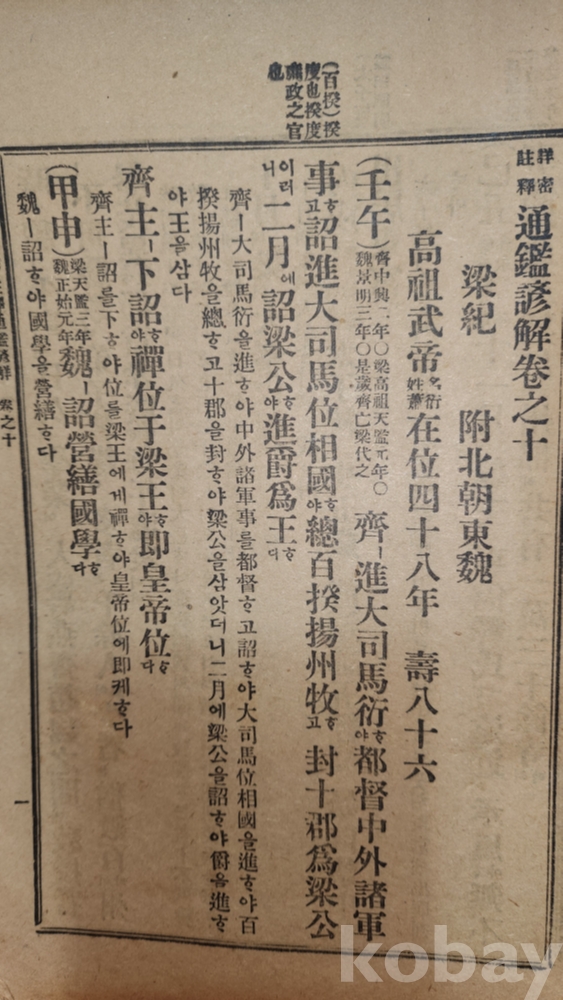 (百揆)揆
度也揆度
庶政之官
也
詳密
註釋 通鑑諺解卷之十
梁紀 附北朝東魏
高祖武帝 名衍
姓蕭 在位四十八年 壽八十六
(壬午) 齊中興二年〇梁高祖天監元年〇
魏景明三年〇是歲齊亡梁代之 齊ㅣ進大司馬衍ᄒᆞ야都督中外諸軍
事ᄒᆞ고詔進大司馬位相國ᄒᆞ야總百揆揚州牧ᄒᆞ고封十郡爲梁公
이러니二月에詔梁公ᄒᆞ야進爵爲王ᄒᆞ다
齊ㅣ大司馬衍을進ᄒᆞ야中外諸軍事를都督ᄒᆞ고詔ᄒᆞ야大司馬位相國을進ᄒᆞ야百
揆揚州牧을總ᄒᆞ고十郡을封ᄒᆞ야梁公을삼앗더니二月에梁公을詔ᄒᆞ야爵을進ᄒᆞ
야王을삼다
齊主ㅣ下詔ᄒᆞ야禪位于梁王ᄒᆞ야即皇帝位ᄒᆞ다
齊主ㅣ詔를下ᄒᆞ야位를梁王에게禪ᄒᆞ야皇帝位에即케ᄒᆞ다
(甲申) 梁天監三年
魏正始元年 魏ㅣ詔營繕國學ᄒᆞ다
魏ㅣ詔ᄒᆞ야國學을營繕ᄒᆞ다
卷之十
一
kobay